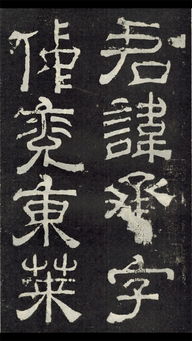 君諱承字
仲兖東萊